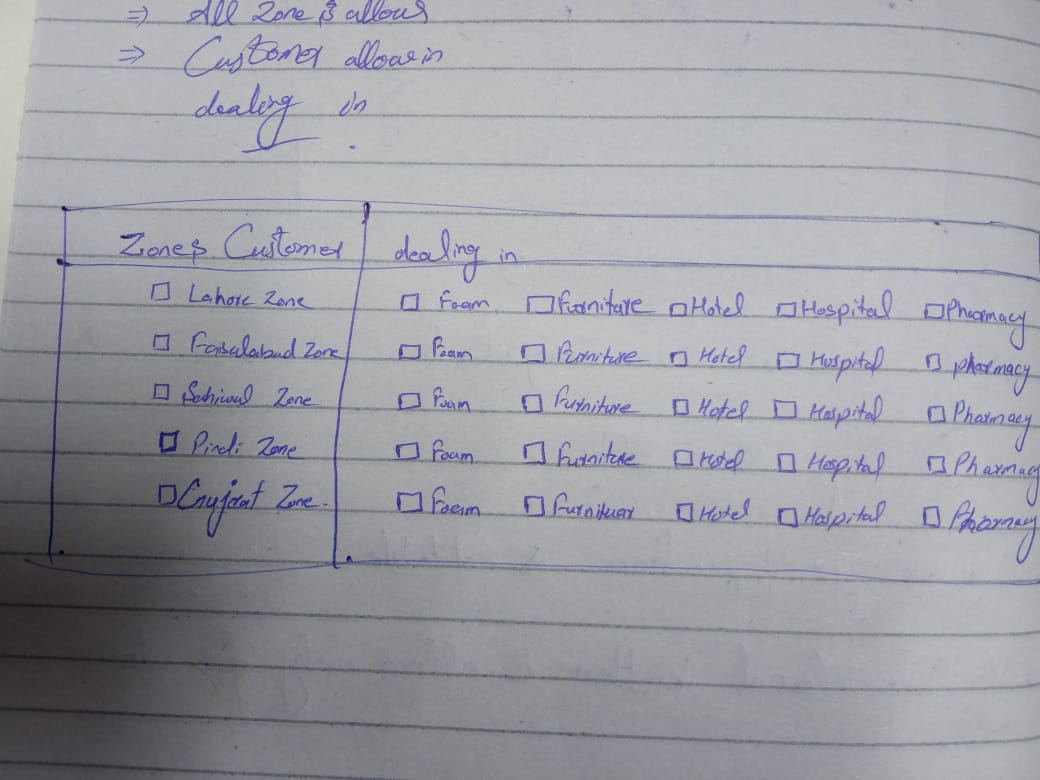 ⇒ All Zone is allows
⇒ Customer allow in
dealing in
Zones Customer dealing in
☐ Lahore Zone ☐ Foam ☐ Furniture ☐ Hotel ☐ Hospital ☐ Pharmacy
☐ Faisalabad Zone ☐ Foam ☐ Furniture ☐ Hotel ☐ Hospital ☐ pharmacy
☐ Sahiwal Zone ☐ Foam ☐ Furniture ☐ Hotel ☐ Hospital ☐ Pharmacy
☐ Pindi Zone ☐ Foam ☐ Furniture ☐ Hotel ☐ Hospital ☐ Pharmacy
☐ Gujrat Zone. ☐ Foam ☐ Furniture ☐ Hotel ☐ Hospital ☐ Pharmacy